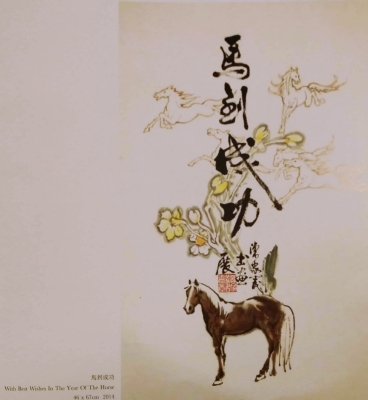 馬到成功
馬到成功
With Best Wishes In The Year Of The Horse
46 x 67cm 2014